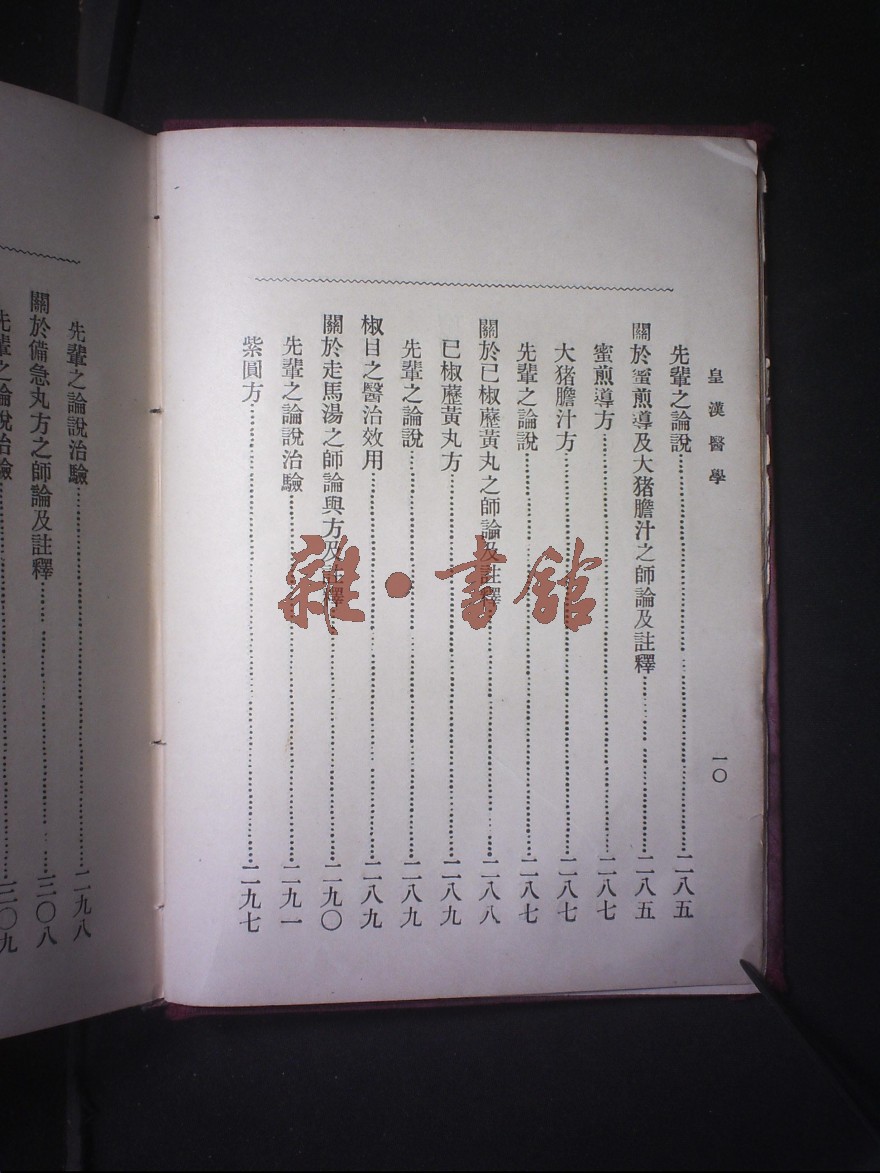 皇漢醫學
一〇
先輩之論說……二八五
關於蜜煎導及大猪膽汁之師論及註釋……二八五
蜜煎導方……二八七
大猪膽汁方……二八七
先輩之論說……二八七
關於已椒藶黃丸之師論及註釋……二八八
已椒藶黃丸方……二八九
先輩之論說……二八九
椒目之醫治效用……二八九
關於走馬湯之師論與方及註釋……二九〇
先輩之論說治驗……二九一
紫圓方……二九七
先輩之論說治驗……二九八
關於備急丸方之師論及註釋……三〇八
先輩之論說治驗……三〇九
雜·書館